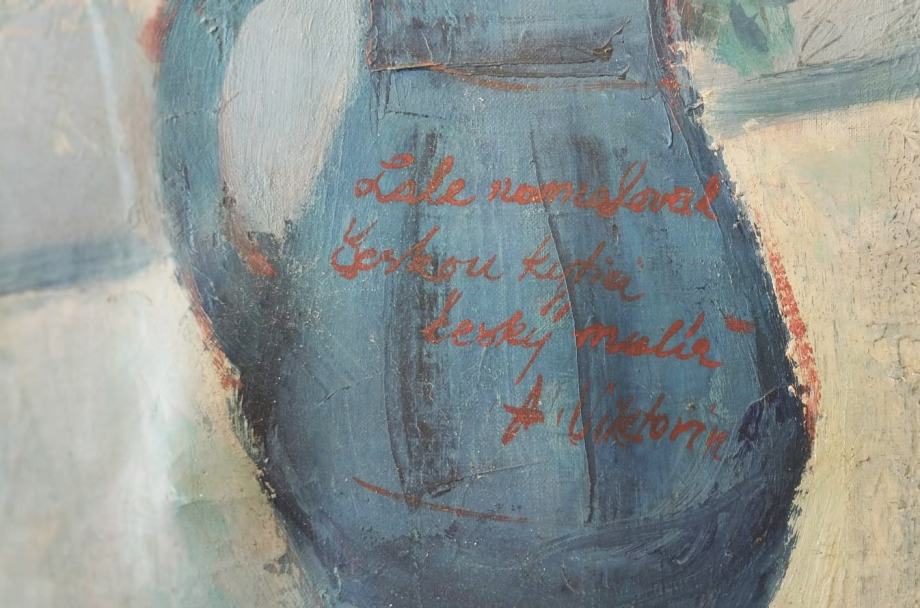 Lale namaloval
Českou kytici
český malíř
A. Viktorin